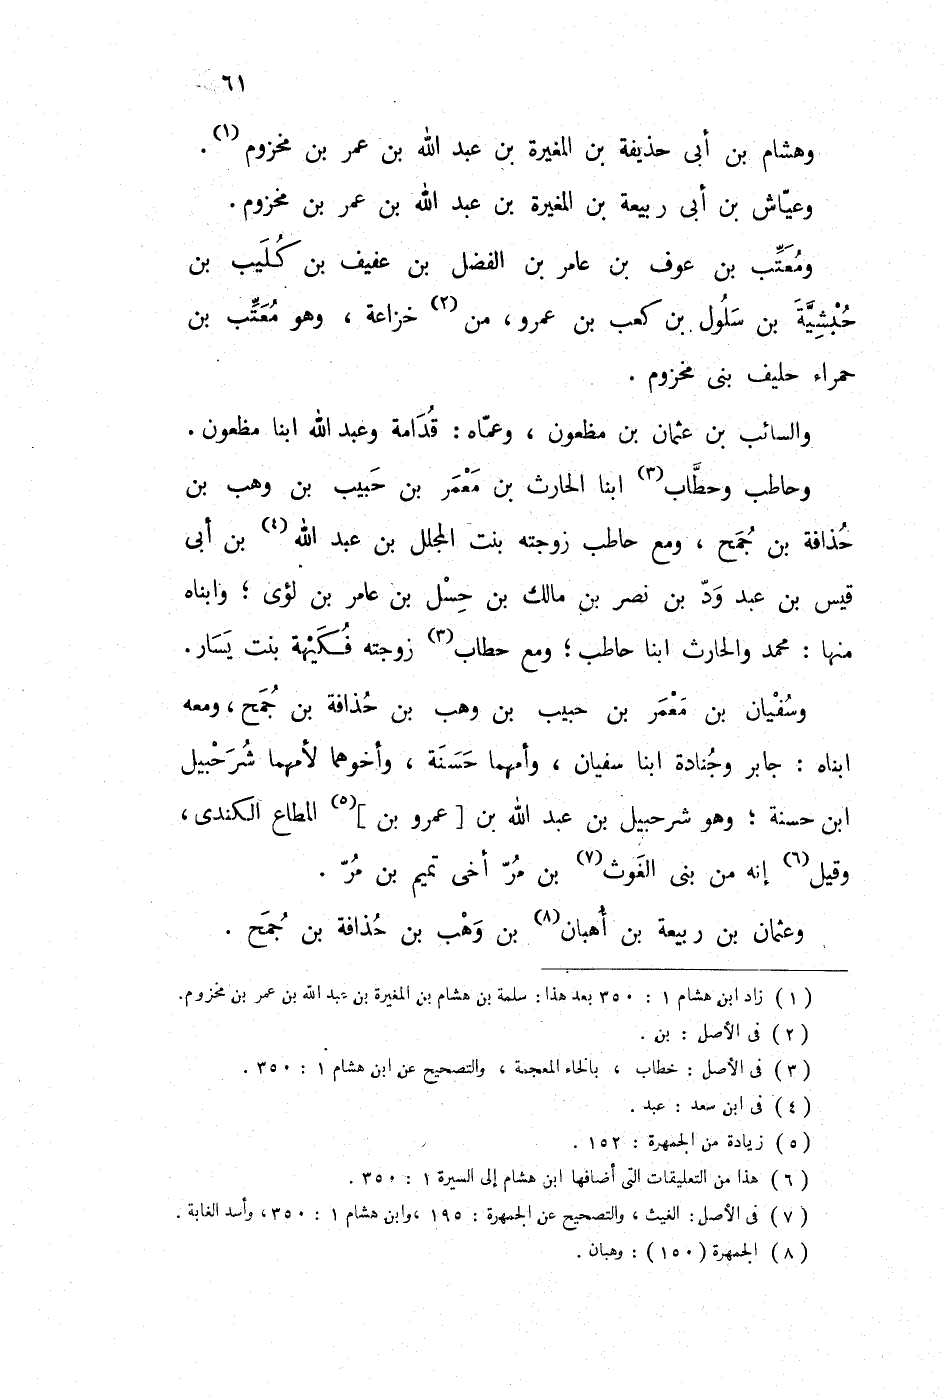 ٦١
وهشام بن أبى حذيفة بن المغيرة بن عبد الله بن عمر بن مخزوم (١) .
وعيّاش بن أبى ربيعة بن المغيرة بن عبد الله بن عمر بن مخزوم .
ومُعَتِّب بن عوف بن عامر بن الفضل بن عفيف بن كُلَيب بن
حُبْشِيَّةَ بن سَلُول بن كعب بن عمرو ، من (٢) خزاعة ، وهو مُعَتِّب بن
حمراء حليف بنى مخزوم .
والسائب بن عثمان بن مظعون ، وعمّاه : قُدَامة وعبد الله ابنا مظعون .
وحاطب وحطَّاب (٣) ابنا الحارث بن مَعْمَر بن حَبيب بن وهب بن
حُذافة بن جُمَح ، ومع حاطب زوجته بنت المجلل بن عبد الله (٤) بن أبى
قيس بن عبد وَدّ بن نصر بن مالك بن حِسْل بن عامر بن لؤى ؛ وابناه
منها : محمد والحارث ابنا حاطب ؛ ومع حطاب (٣) زوجته فُكَيْهة بنت يَسَار .
وسُفْيان بن مَعْمَر بن حبيب بن وهب بن حُذافة بن جُمَح ، ومعه
ابناه : جابر وجُنادة ابنا سفيان ، وأمهما حَسَنَة ، وأخوهما لأمهما شُرَحْبيل
ابن حسنة ؛ وهو شرحبيل بن عبد الله بن [ عمرو بن ] (٥) المطاع الكندى ،
وقيل (٦) إنه من بنى الغَوث (٧) بن مُرّ أخى تميم بن مُرّ .
وعثمان بن ربيعة بن أُهبان (٨) بن وَهْب بن حُذافة بن جُمَح .
( ١ ) زاد ابن هشام ١ : ٣٥٠ بعد هذا : سلمة بن هشام بن المغيرة بن عبد الله بن عمر بن مخزوم .
( ٢ ) فى الأصل : بن .
( ٣ ) فى الأصل : خطاب ، بالخاء المعجمة ، والتصحيح عن ابن هشام ١ : ٣٥٠ .
( ٤ ) فى ابن سعد : عبد .
( ٥ ) زيادة من الجمهرة : ١٥٢ .
( ٦ ) هذا من التعليقات التى أضافها ابن هشام إلى السيرة ١ : ٣٥٠ .
( ٧ ) فى الأصل : الغيث ، والتصحيح عن الجمهرة : ١٩٥ ، وابن هشام ١ : ٣٥٠ ، وأسد الغابة .
( ٨ ) الجمهرة ( ١٥٠ ) : وهبان .